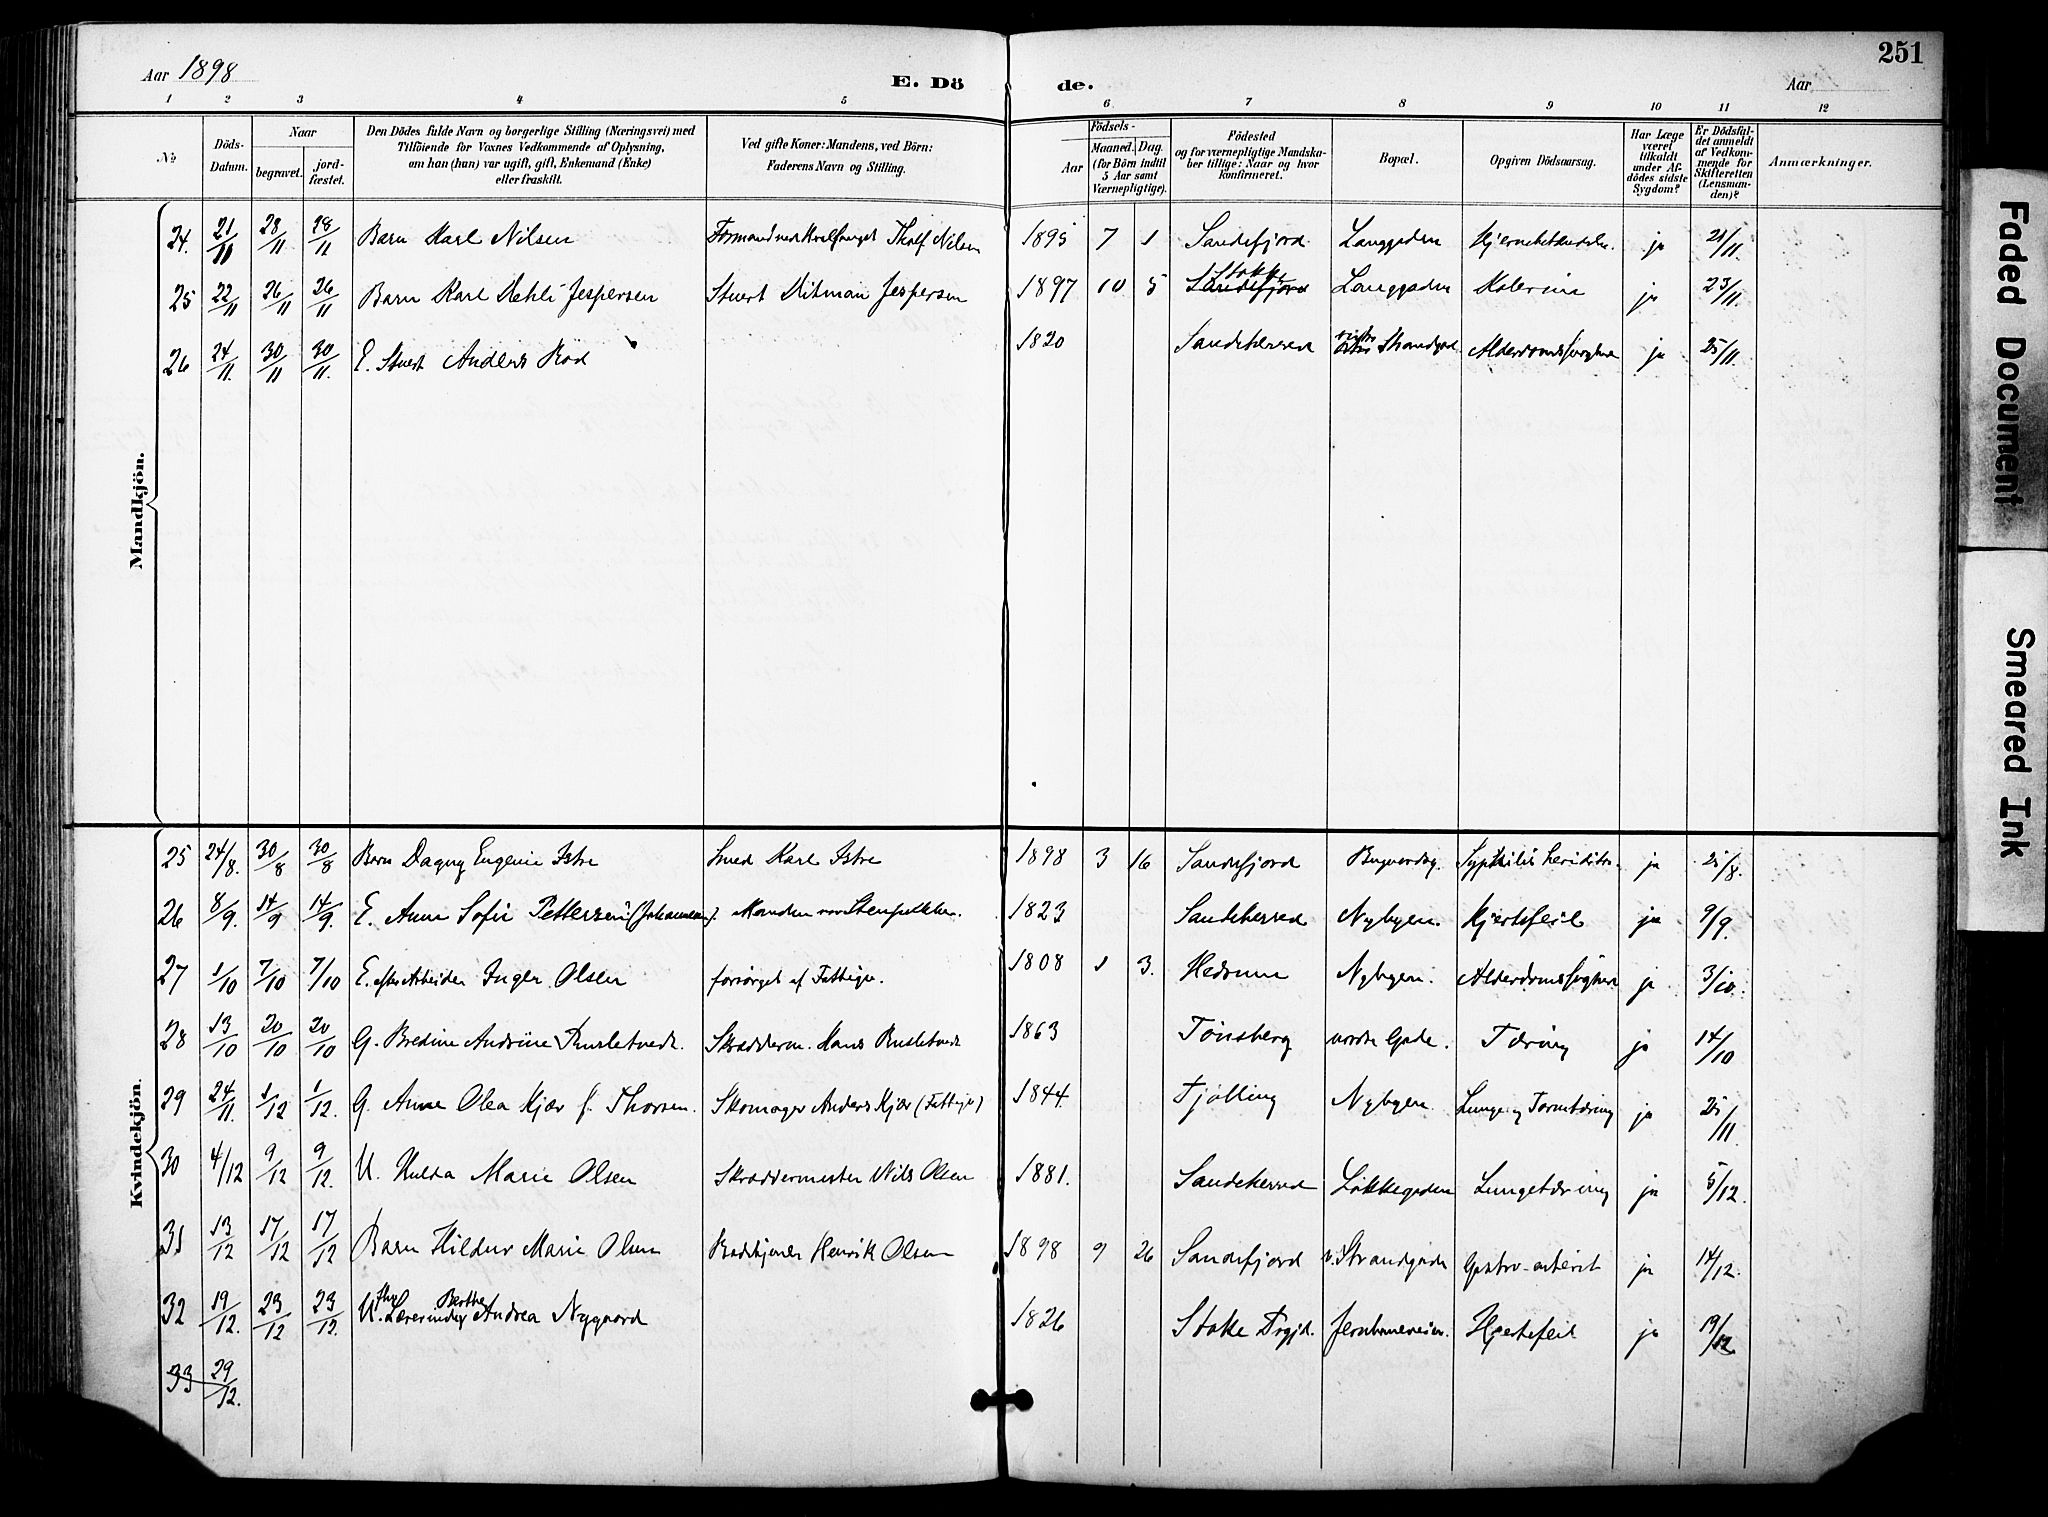 Aar 1898
E. Dö
de.
Aar
251
1 2 3 4 5 6 7 8 9 10 11 12
No
Döds-Datum.
Naar
begravet.
jord-fæstet.
Den Dödes fulde Navn og borgerlige Stilling (Næringsvei) med
Tilföiende for Voxnes Vedkommende af Oplysning,
om han (hun) var ugift, gift, Enkemand (Enke)
eller fraskilt.
Ved gifte Koner: Mandens, ved Börn:
Faderens Navn og Stilling.
Födsels-
Aar
Maaned. Dag.
(for Börn indtil
5 Aar samt
Værnepligtige).
Födested
og for værnepligtige Mandska-
ber tillige: Naar og hvor
konfirmeret.
Bopæl.
Opgiven Dödsaarsag.
Har Læge
været
tilkaldt
under Af-
dödes sidste
Sygdom?
Er Dödsfal-
det anmeldt
af Vedkom-
mende for
Skifteretten
(Lensman-
den)?
Anmærkninger.
Mandkjön.
24. 21/11 28/11 28/11 Barn Karl Nilsen Formand ved Hvalfanget Tholf Nilsen 1895 7 1 Sandefjord Langgaden ja 21/11
25 22/11 26/11 26/11 Barn Karl Dehli Jespersen Stuert Ditman Jespersen 1897 10 5 Stokke Sandefjord Langgaden Kolerine ja 23/11.
26 24/11. 30/11 30/11. E. Stuert Anders Röd 1820 Sandeherred Strandgad. ja 25/11.
Kvindekjön.
25 24/8. 30/8 30/8 Barn Dagny Eugenie Istre Smed Karl Istre 1898 3 16 Sandefjord ja 25/8.
26 8/9. 14/9 14/9. E. Anne Sofie Pettersen (Johannesen). Manden var Stenpikker. 1823 Sandeherred Nybyen. Hjertefeil ja 9/9.
27 1/10 7/10 7/10 E. efter Arbeider Inger Olsen forsörget af Fattigv. 1808 1 3. Hedrum Nybyen. ja 3/10.
28 13/10 20/10 20/10 G. Bredine Andrine Rusletvedt. Skrædderm. Hans Rusletvedt 1863 Tönsberg nordre Gade. Tæring ja 14/10
29 24/11. 1/12 1/12. G. Anne Olea Kjær f. Thorsen. Skomager Anders Kjær (Fattigv) 1844. Tjölling Nybyen. Lunge og Tarmtæring ja 25/11.
30 4/12 9/12 9/12. U. Hulda Marie Olsen Skræddermester Nils Olsen 1881. Sandeherred Lökkegaden Lungetæring ja 5/12.
31 13/12 17/12 17/12 Barn Hildur Marie Olsen Badetjener Henrik Olsen 1898 9 26 Sandefjord v. Strandgade Gastro-enterit ja 14/12.
32 19/12. 23/12 23/12. U. fhv. Lærerinde Berthe Andrea Nygaard 1826 Stokke Prgjd. Jernbaneveien. Hjertefeil ja 19/12
33 29/12.
Faded Document
Smeared Ink